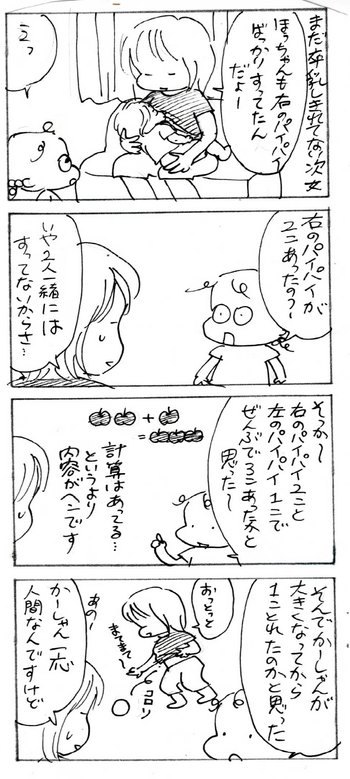 まだ卒乳しきれてない次女
ほっちゃんも右のパイパイ
ばっかりすってたん
だよー
えっ
右のパイパイが
2こあったの?
いや2人一緒には
すってないからさ…
そっか〜
右のパイパイ2こと
左のパイパイ1こで
ぜんぶで3こあったかと
思った〜
+
=
計算はあってる…
というより
内容がヘンです
そんでかーしゃんが
大きくなってから
1ことれたのかと思った
おっとっと
まてまて〜
コロリ
あの〜
かーしゃん一応
人間なんですけど